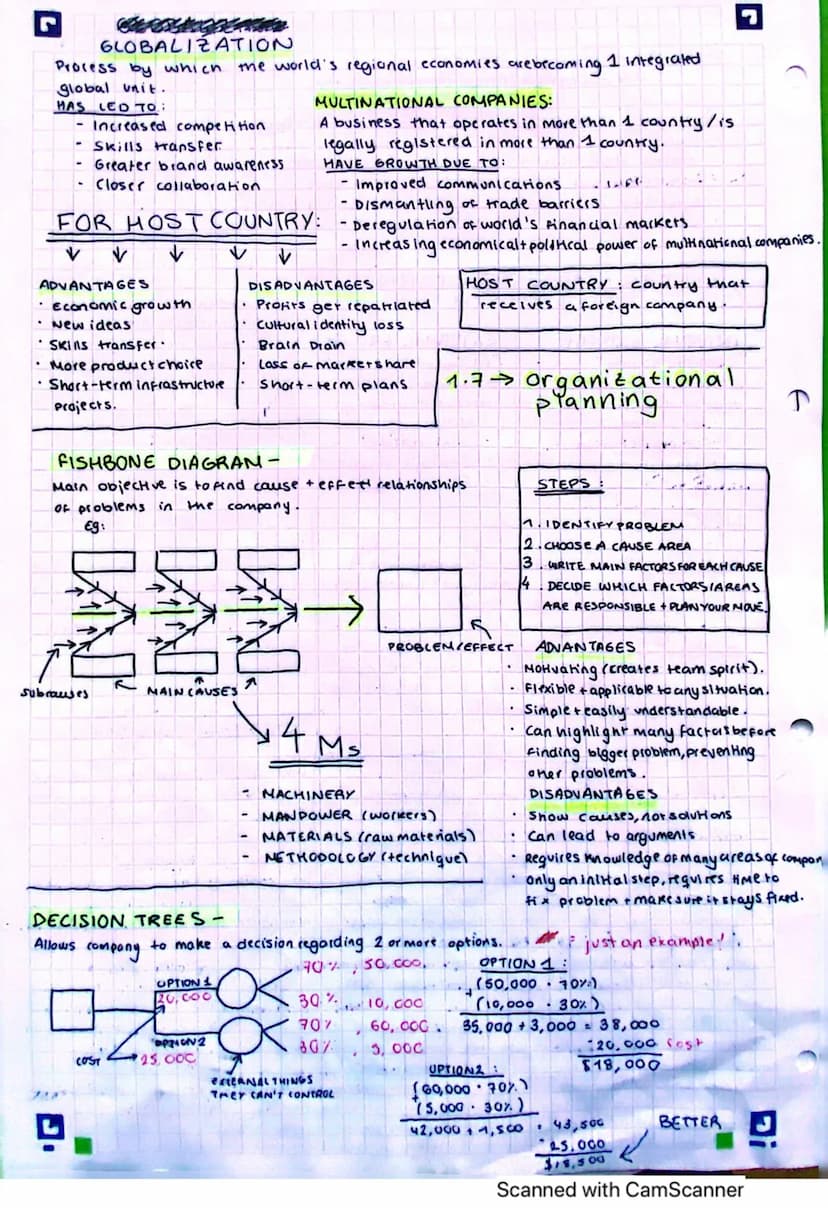 GLOBALIZATION
Process by which the world's regional economies are becoming 1 integrated
global unit.
HAS LED TO:
- Increased competition
- Skills transfer
- Greater brand awareness
- Closer collaboration
MULTINATIONAL COMPANIES:
A business that operates in more than 1 country/is
legally registered in more than 1 country.
HAVE GROWTH DUE TO:
- Improved communications
- Dismantling of trade barriers
- Deregulation of world's financial markets
- Increasing economical + political power of multinational companies.
FOR HOST COUNTRY:
ADVANTAGES
· Economic growth
· New ideas
· Skills transfer.
· More product choice
· Short-term infrastructure
projects.
DISADVANTAGES
· Profits get repatriated
· Cultural identity loss
· Brain Drain
· Loss of market share
· Short-term plans
HOST COUNTRY: country that
receives a foreign company.
1.7 → organizational
planning
FISHBONE DIAGRAM -
Main objective is to find cause + effect relationships
of problems in the company.
Eg:
Subcauses
MAIN CAUSES
PROBLEM/EFFECT
STEPS:
1. IDENTIFY PROBLEM
2. CHOOSE A CAUSE AREA
3. WRITE MAIN FACTORS FOR EACH CAUSE
4. DECIDE WHICH FACTORS/AREAS
ARE RESPONSIBLE + PLAN YOUR MOVE.
4 Ms
- MACHINERY
- MANPOWER (workers)
- MATERIALS (raw materials)
- METHODOLOGY (technique)
ADVANTAGES
· Motivating (creates team spirit).
· Flexible + applicable to any situation.
· Simple + easily understandable.
· Can highlight many factors before
finding bigger problem, preventing
other problems.
DISADVANTAGES
· Show causes, not solutions
· Can lead to arguments
· Requires knowledge of many areas of compan
· Only an initial step, requires time to
fix problem + make sure it stays fixed.
DECISION TREES -
Allows company to make a decision regarding 2 or more options.
: just an example!
OPTION 1
20,000
70%, 50,000.
30%, 10,000
OPTION 2
25,000
70% 60,000.
30% 5,000
COST
EXTERNAL THINGS
THEY CAN'T CONTROL
OPTION 1:
(50,000 · 70%)
+
(10,000 · 30%)
35,000 + 3,000 = 38,000
-20,000 cost
$18,000
OPTION 2:
(60,000 · 70%)
+
(5,000 · 30%)
42,000 + 1,500 = 43,500
-25,000
$18,500
BETTER
Scanned with CamScanner